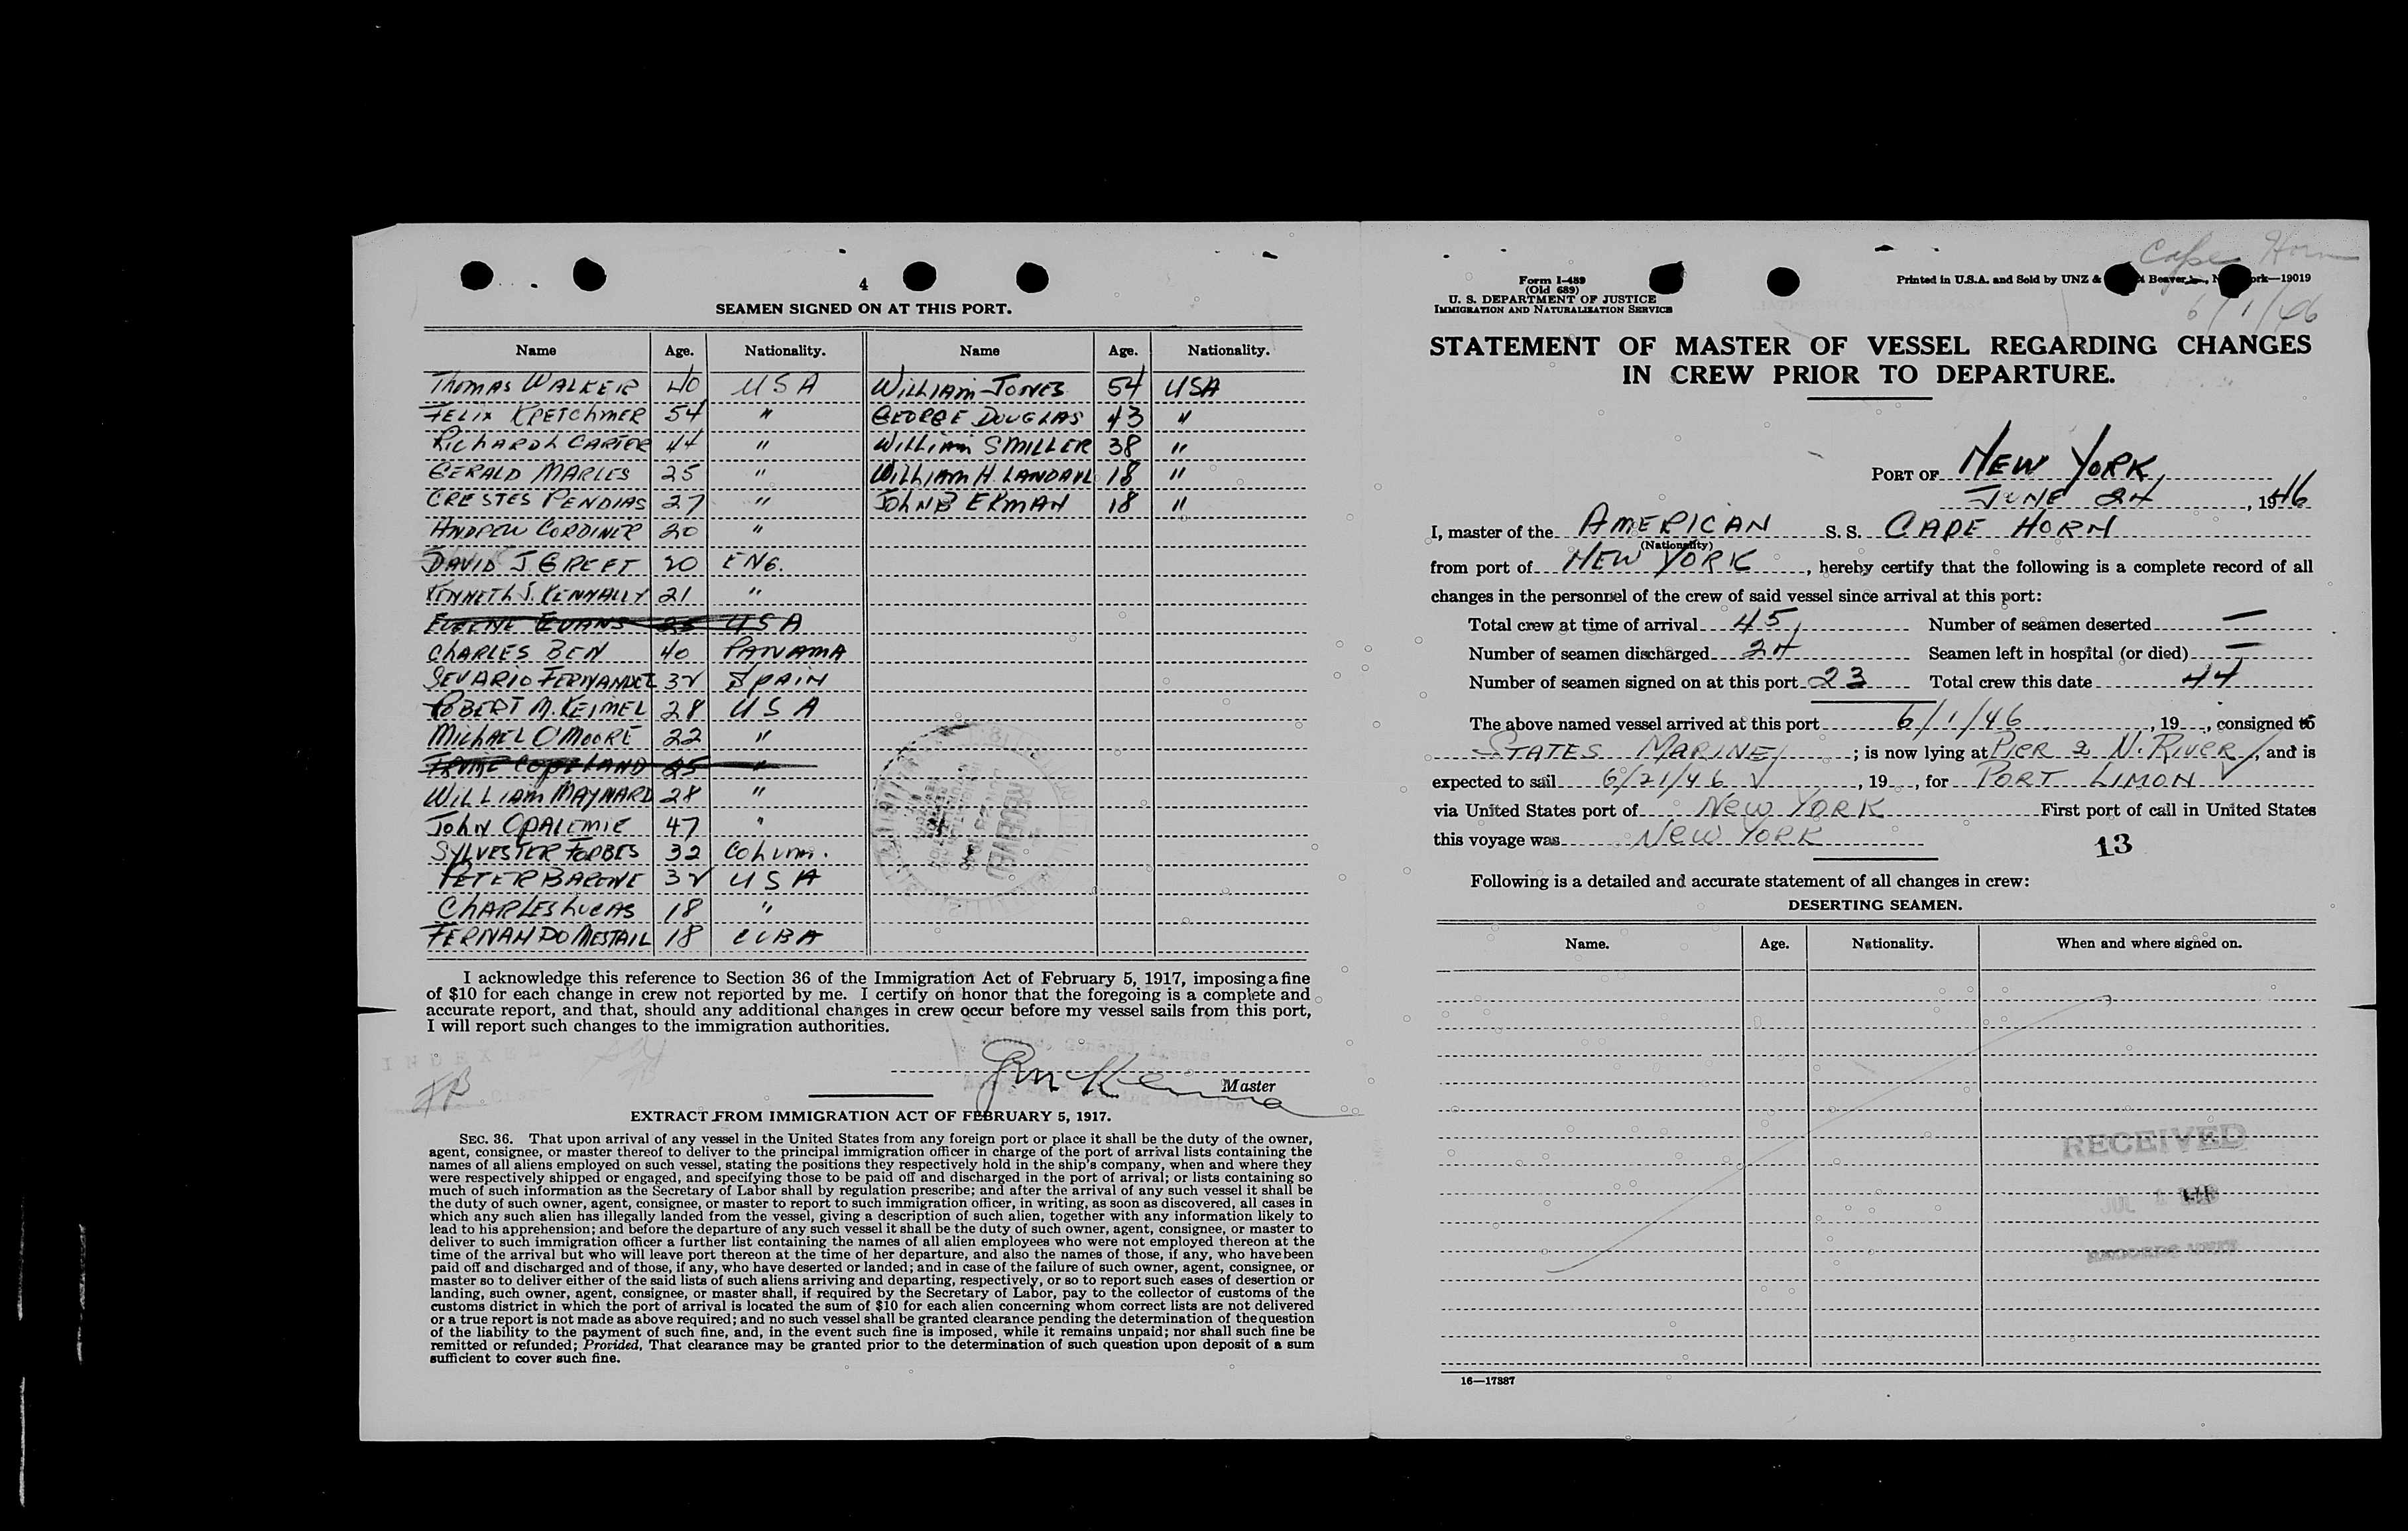 4
SEAMEN SIGNED ON AT THIS PORT.
Name Age. Nationality. Name Age. Nationality.
THOMAS WALKER 40 USA WILLIAM JONES 54 USA
FELIX KRETCHMER 54 " GEORGE DOUGLAS 43 "
RICHARD L CARTER 44 " WILLIAM S MILLER 38 "
GERALD MARLES 25 " WILLIAM H. LANDAHL 18 "
CRESTES PENDIAS 27 " JOHN B EKMAN 18 "
ANDREW CORDINER 20 "
DAVID J GREET 20 ENG.
KENNETH J. KENNALLY 21 "
EUGENE EVANS 25 USA
CHARLES BEN 40 PANAMA
SEVARIO FERNANDEZ 32 SPAIN
ROBERT M. KEIMEL 28 USA
MICHAEL O'MOORE 22 "
COPELAND 25 "
WILLIAM MAYNARD 28 "
JOHN OPALEMIE 47 "
SYLVESTER FORBES 32 COLUM.
PETER BARONE 32 USA
CHARLES LUCAS 18 "
FERNANDO MESTAIL 18 CUBA
RECEIVED
I acknowledge this reference to Section 36 of the Immigration Act of February 5, 1917, imposing a fine
of $10 for each change in crew not reported by me. I certify on honor that the foregoing is a complete and
accurate report, and that, should any additional changes in crew occur before my vessel sails from this port,
I will report such changes to the immigration authorities.
INDEXED
Master
EXTRACT FROM IMMIGRATION ACT OF FEBRUARY 5, 1917.
SEC. 36. That upon arrival of any vessel in the United States from any foreign port or place it shall be the duty of the owner,
agent, consignee, or master thereof to deliver to the principal immigration officer in charge of the port of arrival lists containing the
names of all aliens employed on such vessel, stating the positions they respectively hold in the ship's company, when and where they
were respectively shipped or engaged, and specifying those to be paid off and discharged in the port of arrival; or lists containing so
much of such information as the Secretary of Labor shall by regulation prescribe; and after the arrival of any such vessel it shall be
the duty of such owner, agent, consignee, or master to report to such immigration officer, in writing, as soon as discovered, all cases in
which any such alien has illegally landed from the vessel, giving a description of such alien, together with any information likely to
lead to his apprehension; and before the departure of any such vessel it shall be the duty of such owner, agent, consignee, or master to
deliver to such immigration officer a further list containing the names of all alien employees who were not employed thereon at the
time of the arrival but who will leave port thereon at the time of her departure, and also the names of those, if any, who have been
paid off and discharged and of those, if any, who have deserted or landed; and in case of the failure of such owner, agent, consignee, or
master so to deliver either of the said lists of such aliens arriving and departing, respectively, or so to report such cases of desertion or
landing, such owner, agent, consignee, or master shall, if required by the Secretary of Labor, pay to the collector of customs of the
customs district in which the port of arrival is located the sum of $10 for each alien concerning whom correct lists are not delivered
or a true report is not made as above required; and no such vessel shall be granted clearance pending the determination of the question
of the liability to the payment of such fine, and, in the event such fine is imposed, while it remains unpaid; nor shall such fine be
remitted or refunded; Provided, That clearance may be granted prior to the determination of such question upon deposit of a sum
sufficient to cover such fine.
Cape Horn
6/1/46
Form I-489
(Old 689)
U. S. DEPARTMENT OF JUSTICE
IMMIGRATION AND NATURALIZATION SERVICE
Printed in U.S.A. and Sold by UNZ & Beaver ork—19019
STATEMENT OF MASTER OF VESSEL REGARDING CHANGES
IN CREW PRIOR TO DEPARTURE.
PORT OF NEW YORK
JUNE 24, 1946
I, master of the AMERICAN S. S. CAPE HORN
(Nationality)
from port of NEW YORK, hereby certify that the following is a complete record of all
changes in the personnel of the crew of said vessel since arrival at this port:
Total crew at time of arrival 45 Number of seamen deserted —
Number of seamen discharged 24 Seamen left in hospital (or died) —
Number of seamen signed on at this port 23 Total crew this date 44
The above named vessel arrived at this port 6/1/46, 19 , consigned to
STATES MARINE; is now lying at PIER 2 N. RIVER, and is
expected to sail 6/21/46, 19 , for PORT LIMON
via United States port of NEW YORK First port of call in United States
this voyage was NEW YORK
13
Following is a detailed and accurate statement of all changes in crew:
DESERTING SEAMEN.
Name. Age. Nationality. When and where signed on.
RECEIVED
JUL 1
RECORDS UNIT
16—17387